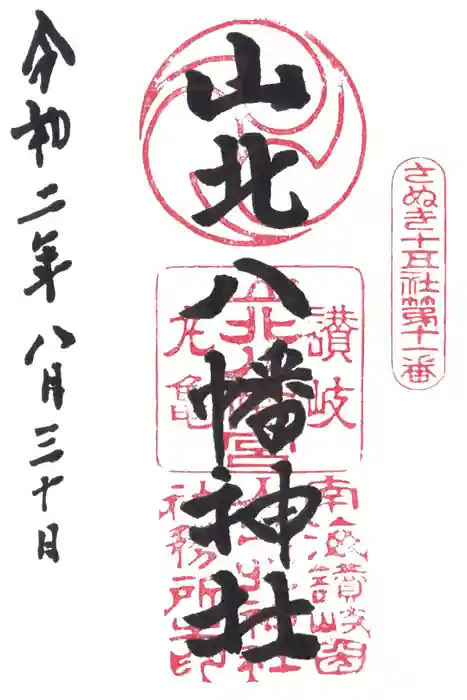 さぬき十五社第十一番
山北八幡神社
讃岐
山北八幡宮
丸亀
南海讃岐国
社務所之印
令和二年八月三十日